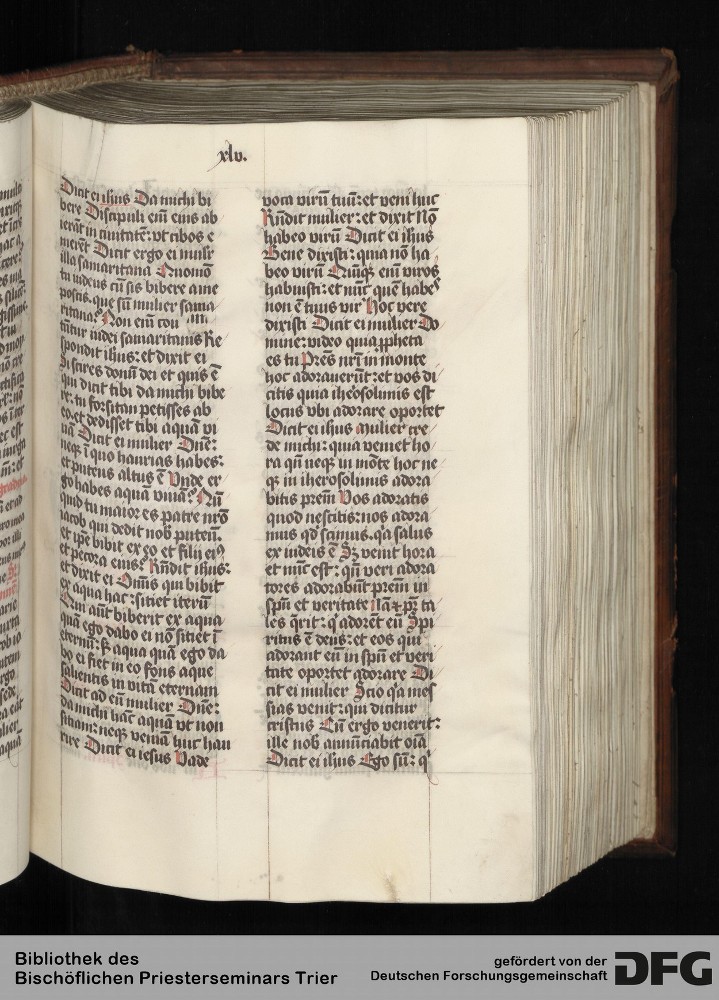 xlv.
Dicit ei ihus Da michi bi
bere Discipuli eni eius ab
ierāt in ciuitatē: vt cibos e
merēt Dicit ergo ei mulier
illa samaritana Quomō
tu iudeus cū sis bibere a me
poscis. que sū mulier sama
ritana? Non eni cou
tūtur iudei samaritanis Re
spondit ihus: et dixit ei
Si scires donū dei et quis ē
qui dicit tibi da michi bibe
re: tu forsitan petisses ab
eo. et dedisset tibi aquā vi
uā Dicit ei mulier Dne:
neqʒ ī quo haurias habes:
et puteus altus ē Vnde er
go habes aquā viuā? Nū
quid tu maior es patre nrō
iacob qui dedit nob puteū.
et ipē bibit ex eo et filij eiꝰ
et pecora eius? Rndit ihus:
et dixit ei Omīs qui bibit
ex aqua hac: sitiet iterū
Qui aūt biberit ex aqua
quā ego dabo ei nō sitiet ī
eternū: sʒ aqua quā ego da
bo ei fiet in eo fons aque
salientis in vitā eternam
Dicit ad eū mulier Dne:
da michi hāc aquā vt non
sitiam: neqʒ veniā huc hau
rire Dicit ei iesus Vade
voca virū tuū: et veni huc
Rndit mulier: et dixit Nō
habeo virū Dicit ei ihus
Bene dixisti: quia nō ha
beo virū Quīqʒ eni viros
habuisti: et nūc quē habeˢ
non ē tuus vir Hoc vere
dixisti Dicit ei mulier Do
mine: video quia ꝓpheta
es tu Pr̄es nr̄i in monte
hoc adorauerūt: et vos di
citis quia iherosolimis est
locus vbi adorare oportet
Dicit ei ihus Mulier cre
de michi: quia veniet ho
ra qn̄ neqʒ in mōte hoc ne
qʒ in iherosolimis adora
bitis prem̄ Vos adoratis
quod nescitis: nos adora
mus qd scimus. qa salus
ex iudeis ē Sʒ venit hora
et nūc est: qn̄ veri adora
tores adorabūt prem̄ in
spū et veritate Nā et pr̄ ta
les qrit: q adorēt eū Spi
ritus ē deus: et eos qui
adorant eū in spū et veri
tate oportet adorare Di
cit ei mulier Scio qa mes
sias venit: qui dicitur
cristus Cū ergo venerit:
ille nob annūciabit oīa
Dicit ei ihus Ego sū: q
Bibliothek des
Bischöflichen Priesterseminars Trier
gefördert von der
Deutschen Forschungsgemeinschaft
DFG